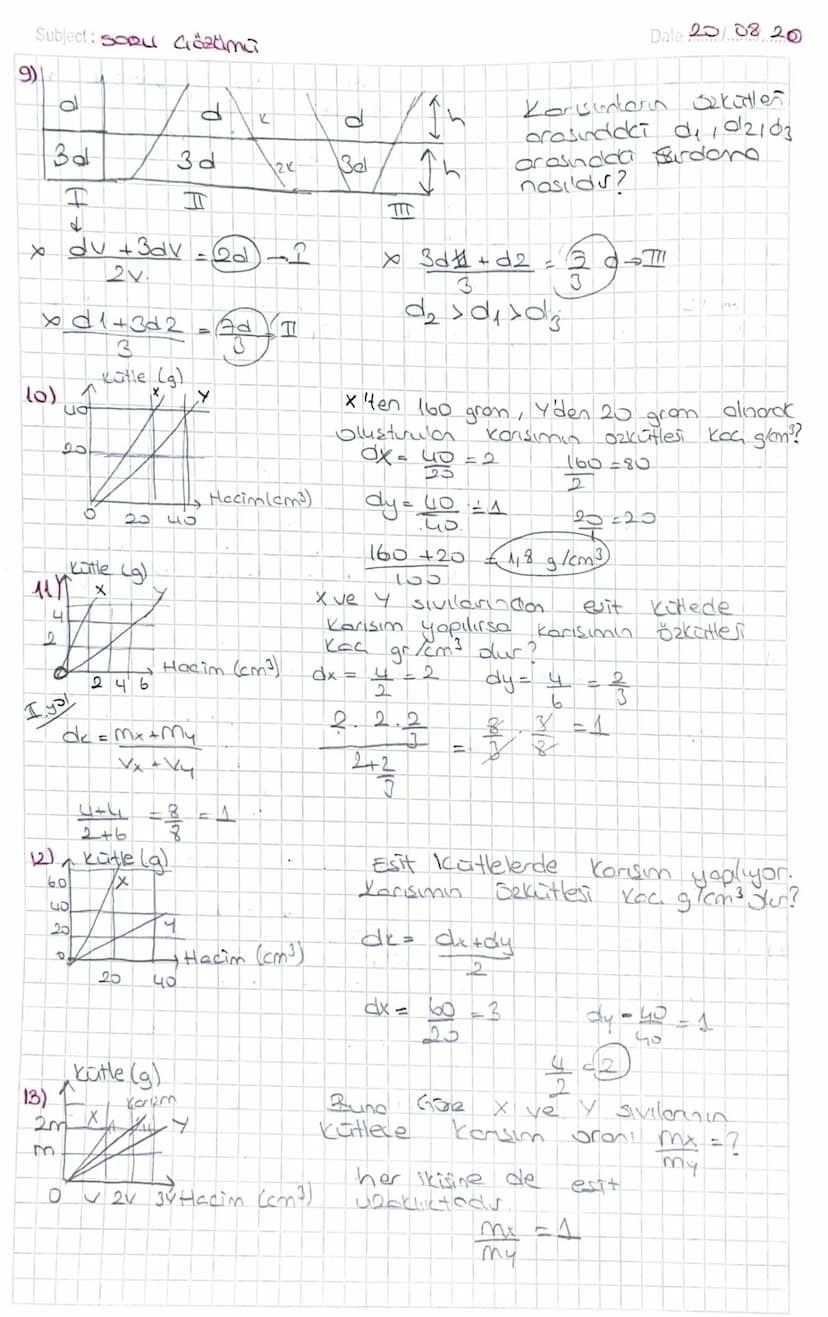 Subject: SORU ÇÖZÜMÜ Date 20/08 20
9)
d d K d h
3d 3d 2K 3d h
I II III
Karışımların özkütleri
arasındaki d1, d2, d3
arasındaki
nasıldır?
x dV + 3dV / 2V. = 2d → I
x 3d + d2 / 3 = d → III
d2 > d1 > d3
x d1 + 3d2 / 3 = 7d / 3 II
10) Kütle (g)
X Y
40
20
0 20 40 Hacim (cm³)
X'ten 160 gram, Y'den 20 gram alınarak
oluşturulan karışımın özkütlesi kaç g/cm³?
dx = 40/20 = 2 160/2 = 80
dy = 40/40 = 1 20/1 = 20
160 + 20 / 100 = 1,8 g/cm³
11) Kütle (g)
X Y
4
2
0 2 4 6 Hacim (cm³)
X ve Y sıvılarından eşit kütlede
karışım yapılırsa karışımın özkütlesi
kaç gr/cm³ dur?
dx = 4/2 = 2 dy = 4/6 = 2/3
I. yol
dk = mx + my / Vx + Vy
2 . 2 . 2/3 / 2 + 2/3 = 8/3 . 3/8 = 1
4+4 / 2+6 = 8/8 = 1
12) Kütle (g)
60 X
40
20 Y
0 20 40 Hacim (cm³)
Eşit kütlelerde karışım yapılıyor.
Karışımın özkütlesi kaç g/cm³ dur?
dk = dx + dy / 2
dx = 60/20 = 3 dy = 40/40 = 1
4/2 = 2
13) Kütle (g)
X karışım Y
2m
m
0 V 2V 3V Hacim (cm³)
Buna Göre X ve Y sıvılarının
kütlece karışım oranı mx/my = ?
her ikisine de eşit
uzaklıktadır.
mx/my = 1